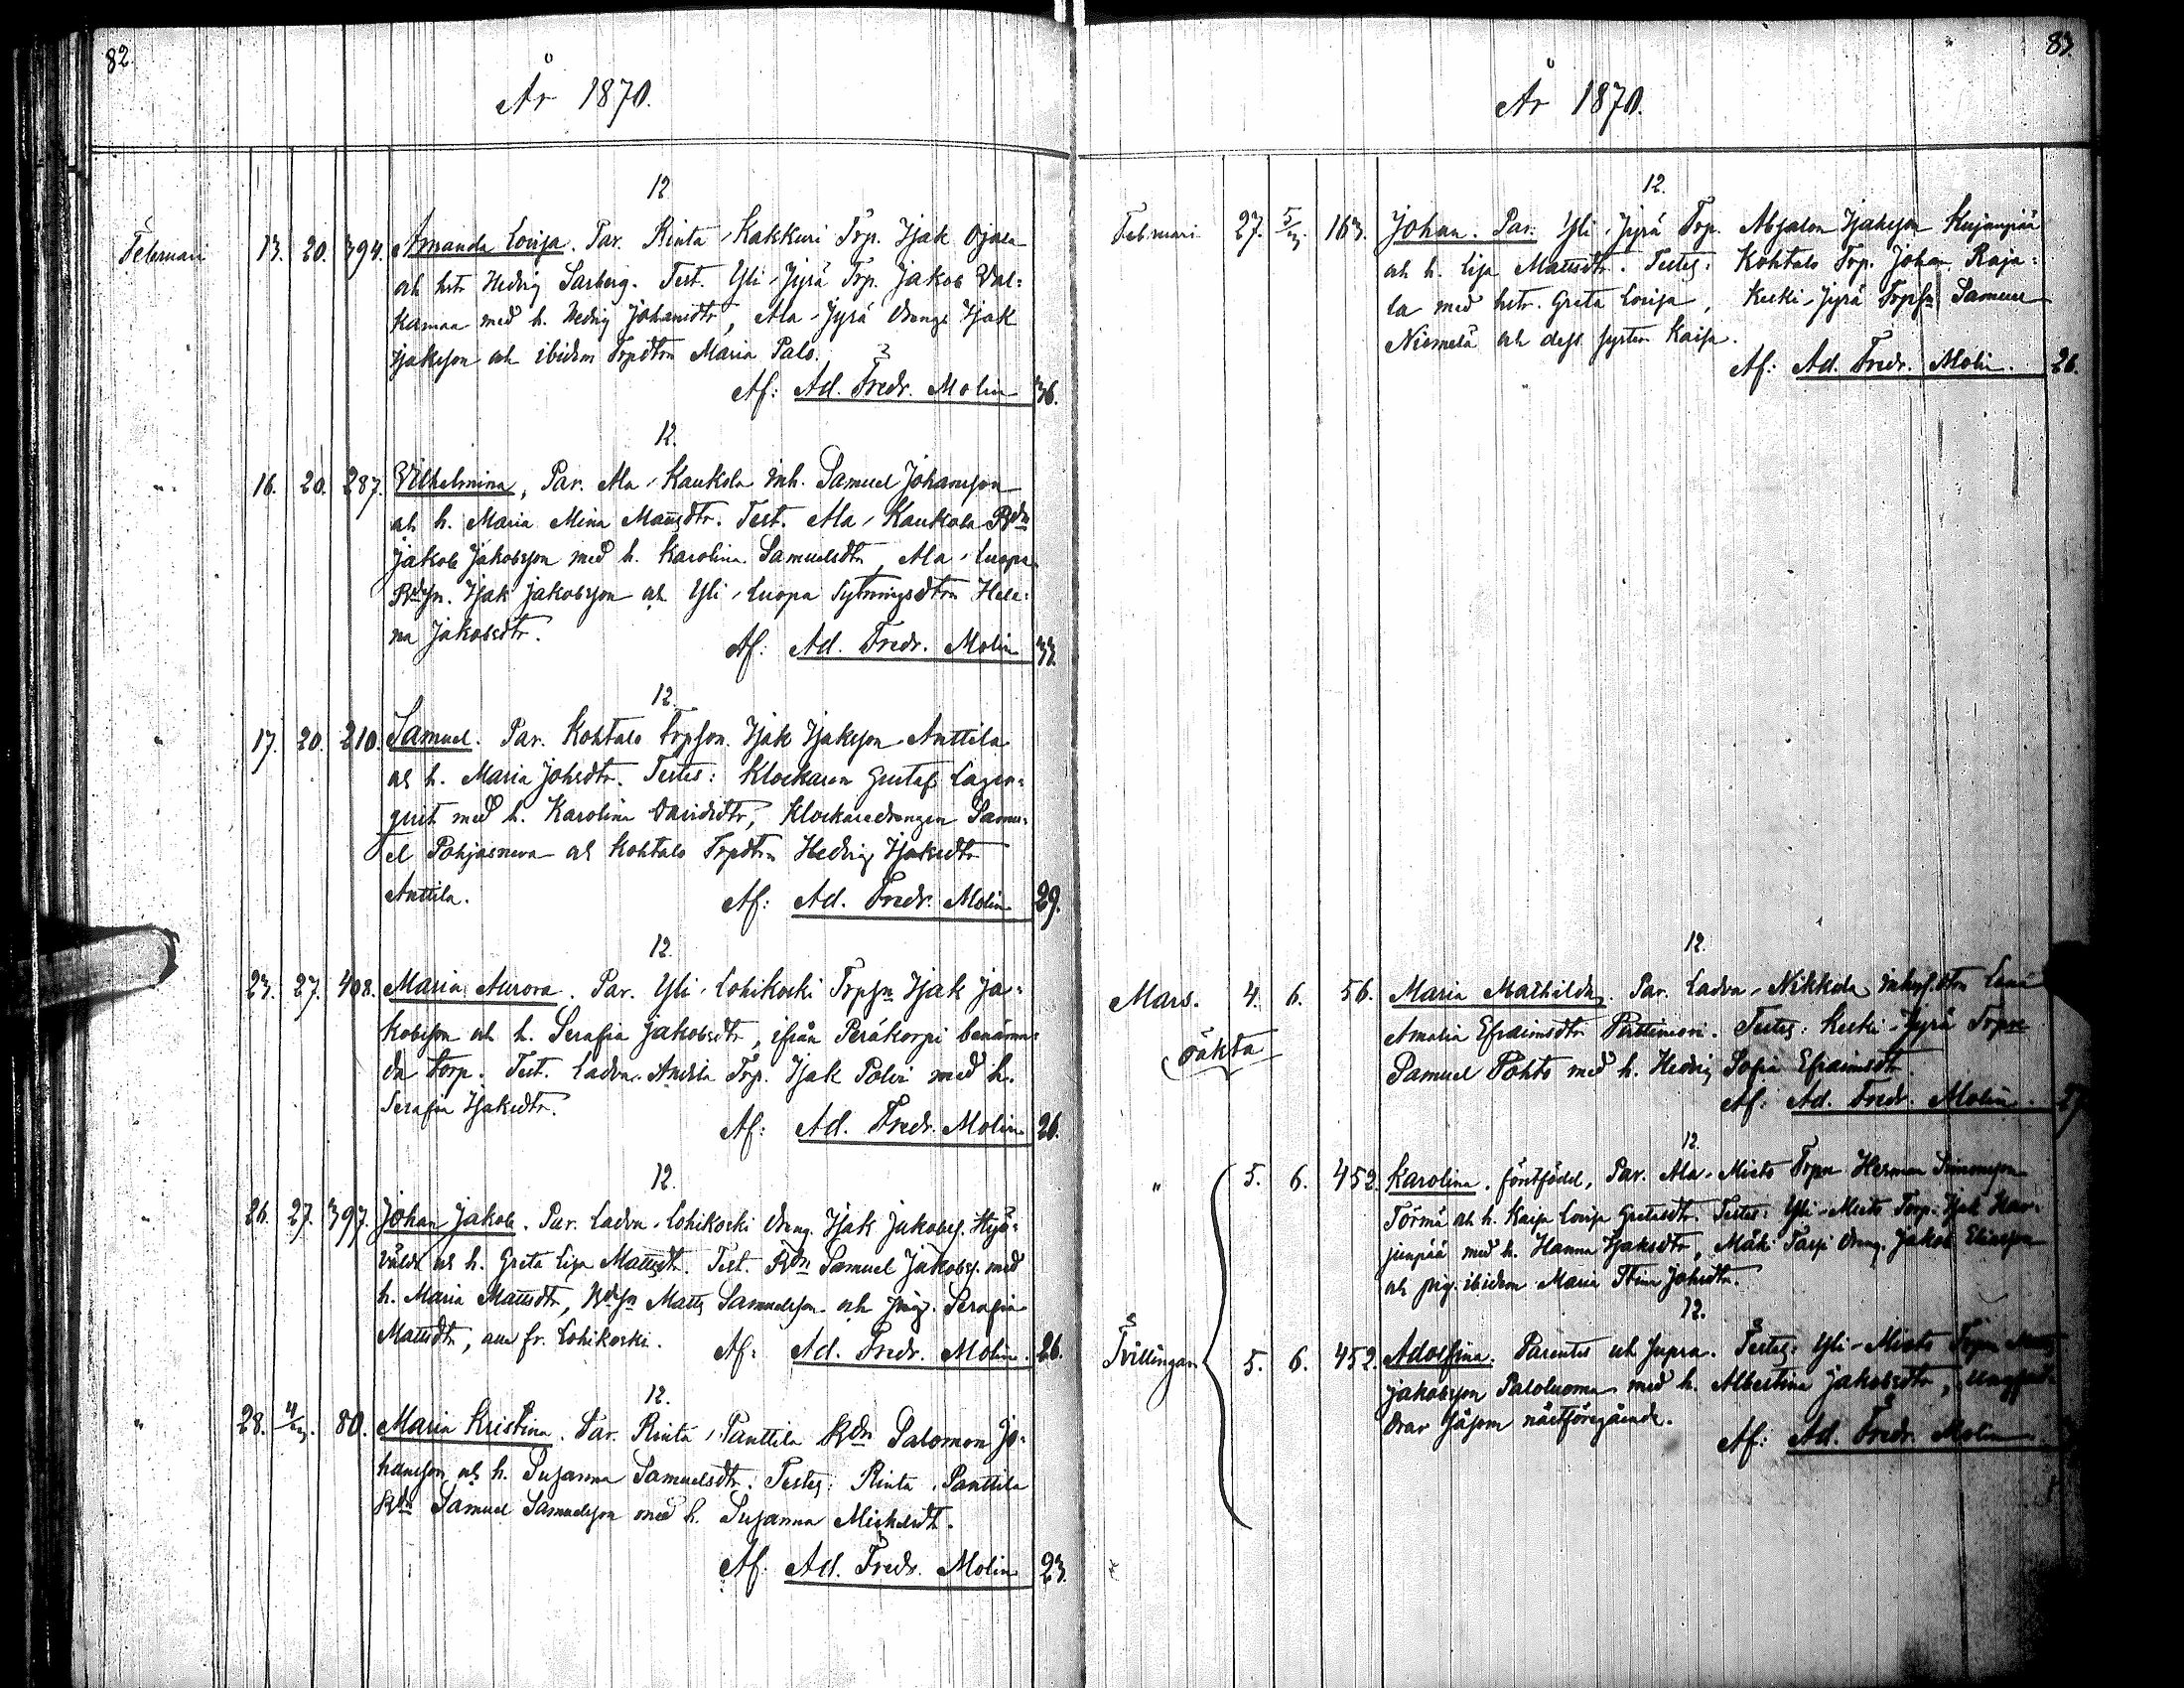 82.
År 1870.
12
Februari 13. 20. 394. Amanda Lovisa. Par. Rinta-Kakkuri Trp. Isak Ojala
och hstr Hedvig Sarberg. Test. Yli-Jyrä Trp. Jakob Val=
kamaa med h. Hedvig Johansdtr, Ala-Jyrä Dräng. Isak
Isaksson och ibidem Trpdtrn Maria Palo.
Af: Ad. Fredr. Molin 36.
12.
" 16. 20. 287. Vilhelmina, Par. Ala-Kaukola Inh. Samuel Johansson
och h. Maria Mina Mattsdtr. Test. Ala-Kaukola Bdn
Jakob Jakobsson med h. Karolina Samuelsdtr, Ala-Luopa
Bdsn. Isak Jakobsson och Yli-Luopa Sytningsdtrn Hele=
na Jakobsdtr.
Af: Ad. Fredr. Molin 33.
12.
" 17. 20. 210. Samuel. Par. Kohtalo Trpson. Isak Isaksson Anttila
och h. Maria Johsdtr. Testes: Klockaren Gustaf Lagen=
qvist med h. Karolina Davidsdtr, Klockaredrängen Samu=
el Pohjasneva och Kohtalo Trpdtrn Hedvig Isaksdtr
Anttila.
Af: Ad. Fredr. Molin 29.
12.
23. 27. 408. Maria Aurora. Par. Yli-Lohikoski Trpsn Isak Ja=
kobsson och h. Serafia Jakobsdtr, ifrån Peräkorpi benämn=
da torp. Test. Ladva-Anttila Trp. Isak Polvi med h.
Serafia Isaksdtr.
Af: Ad. Fredr. Molin 26.
12.
" 26. 27. 397. Johan Jakob. Par. Ladva-Lohikoski Dräng. Isak Jakobss.
och h. Greta Lisa Mattsdtr. Test. Bdn Samuel Jakobss. med
h. Maria Mattsdtr, Bdsn Matts Samuelsson och pig. Serafia
Mattsdtr, alla fr. Lohikoski.
Af: Ad. Fredr. Molin. 26.
12.
" 28. 4/3. 80. Maria Kristina. Par. Rinta-Panttila Bdn Salomon Jo=
hansson och h. Susanna Samuelsdtr. Testes: Rinta-Panttila
Bdn Samuel Samuelsson med h. Susanna Michelsdtr.
Af: Ad. Fredr. Molin 23.
83.
År 1870.
12.
Februari 27. 5/3. 163. Johan. Par. Yli-Jyrä Trp. Absalon Isaksson Kujanpää
och h. Lisa Mattsdtr. Testes: Kohtalo Trp. Johan Raja=
la med hstr. Greta Lovisa, Keski-Jyrä Trpsn Samuel
Niemelä och dess syster Kaisa.
Af: Ad. Fredr. Molin. 26.
12.
Mars. 4. 6. 56. Maria Mathilda. Par. Ladva-Nikkola Inhys.dtrn Lena
oäkta
Amalia Efraimsdtr Perttimäki. Testes: Keski-Jyrä Trpsn
Samuel Pohto med h. Hedvig Sofia Efraimsdtr.
Af: Ad. Fredr. Molin. 27
12.
" 5. 6. 452. Karolina. förstfödd, Par. Ala-Mieto Trpn Herman Simonsson
Törmä och h. Kaisa Lovisa Gretasdtr. Testes: Yli-Mieto Torp. Isak Har=
junpää med h. Hanna Isaksdtr, Mäki Dräng. Jakob Eliasson
och pig. ibidem Maria Stina Johsdtr.
12.
Tvillingar 5. 6. 452. Adolfina. Parentes ut supra. Testes: Yli-Mieto Trpn Matts
Jakobsson Paloluoma med h. Albertina Jakobsdtr,
såsom nästföregående.
Af: Ad. Fredr. Molin